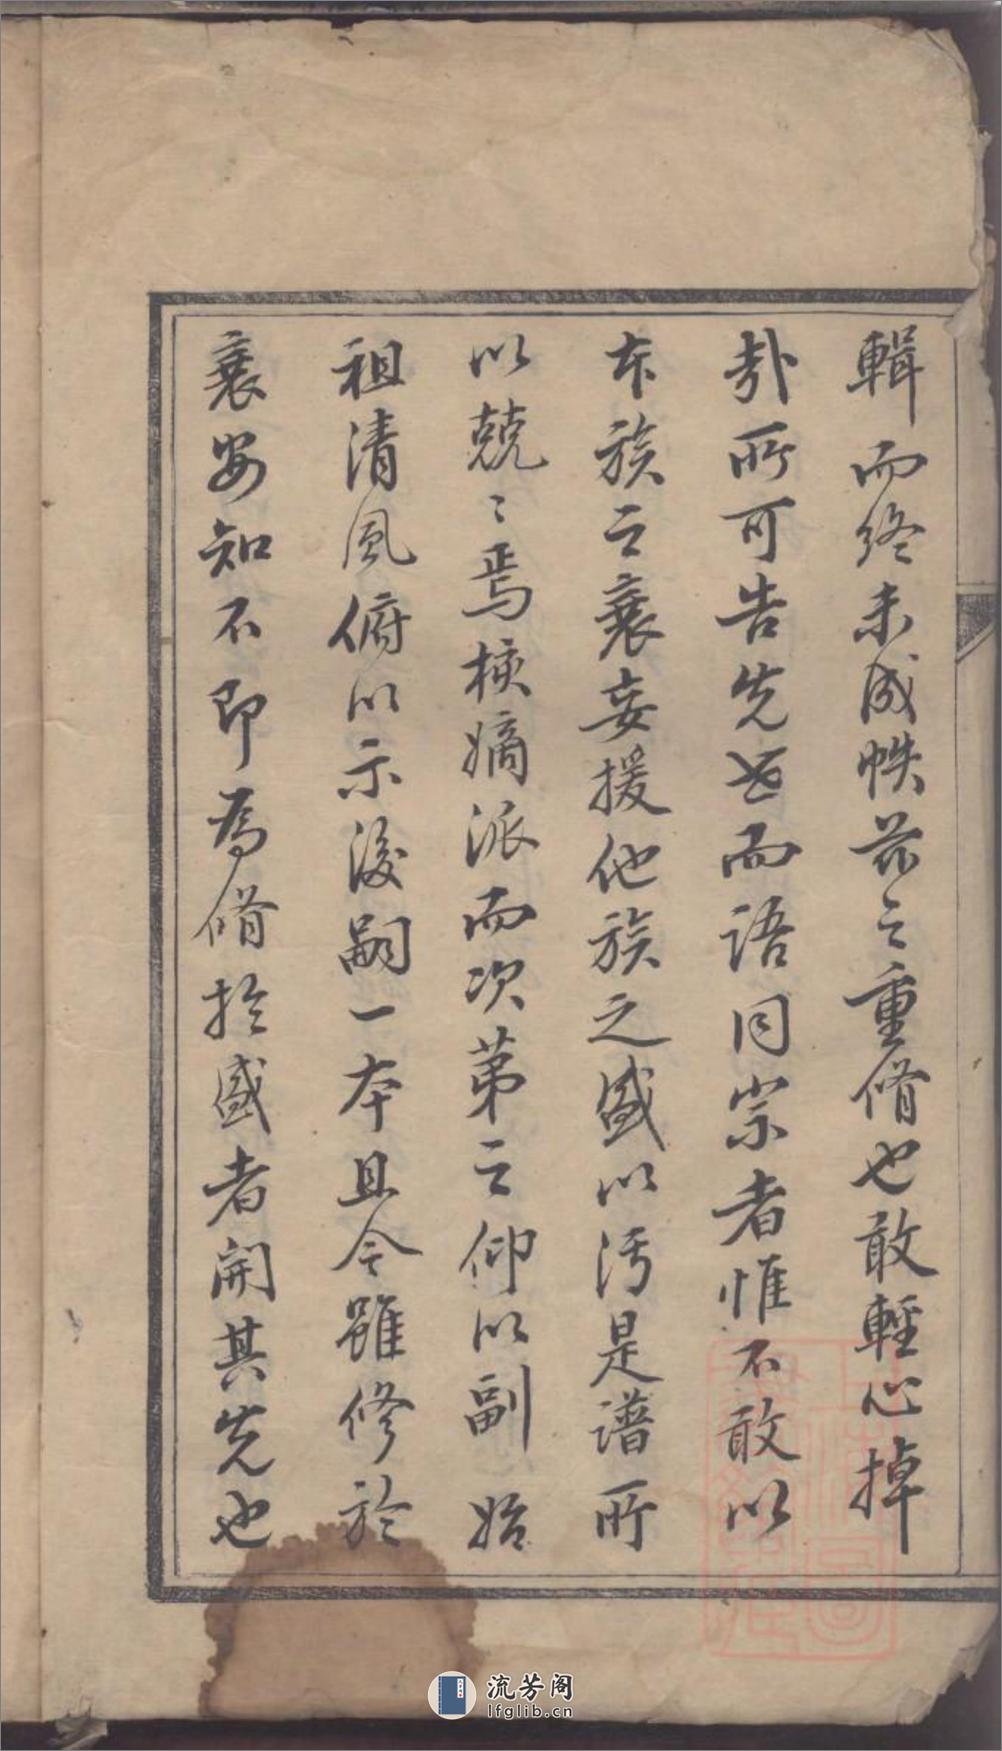 輯而終未成帙茲之重脩也敢輕心掉
哉所可告先世而語同宗者惟不敢以
本族之衰妄援他族之盛以污是譜所
以兢〻焉核嫡派而次第之仰以副始
祖清風俯以示後嗣一本且今雖修於
衰安知不即為脩於盛者開其先也
流芳阁
lfglib.cn